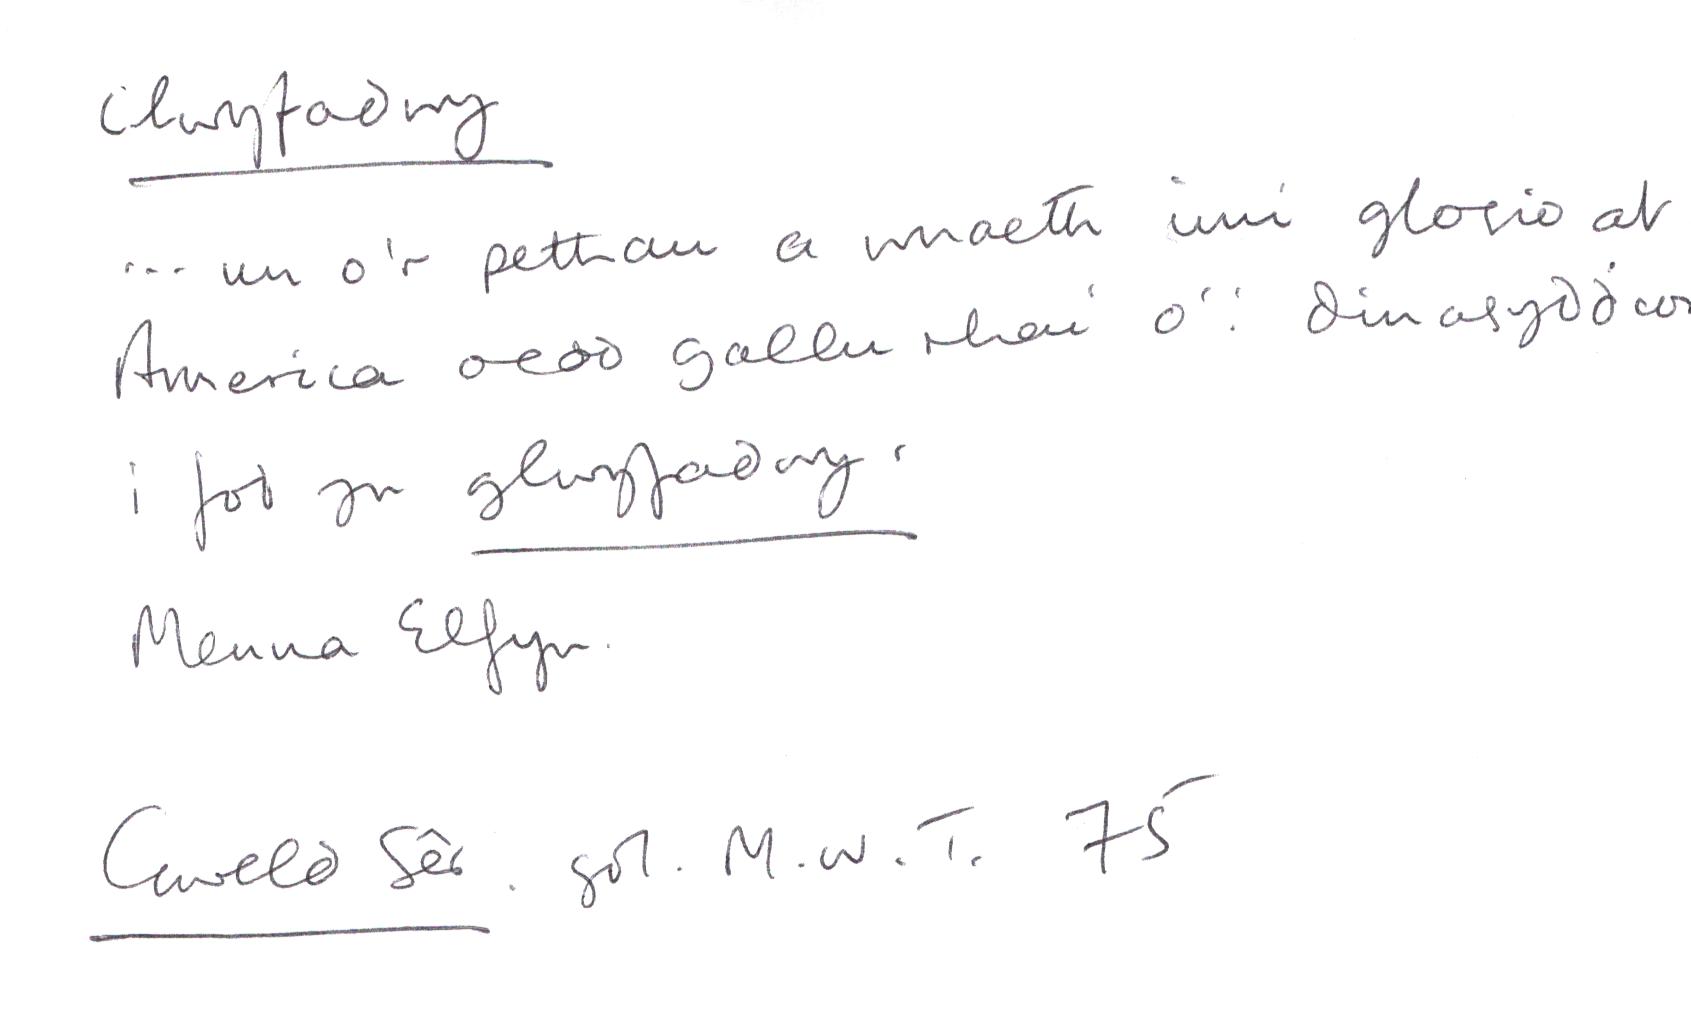 clwyfadwy
... un o'r pethau a wnaeth imi glosio at
America oedd gallu rhai o'i dinasyddion
i fod yn glwyfadwy.
Menna Elfyn.
Gweld Sêr. gol. M.W.T. 75